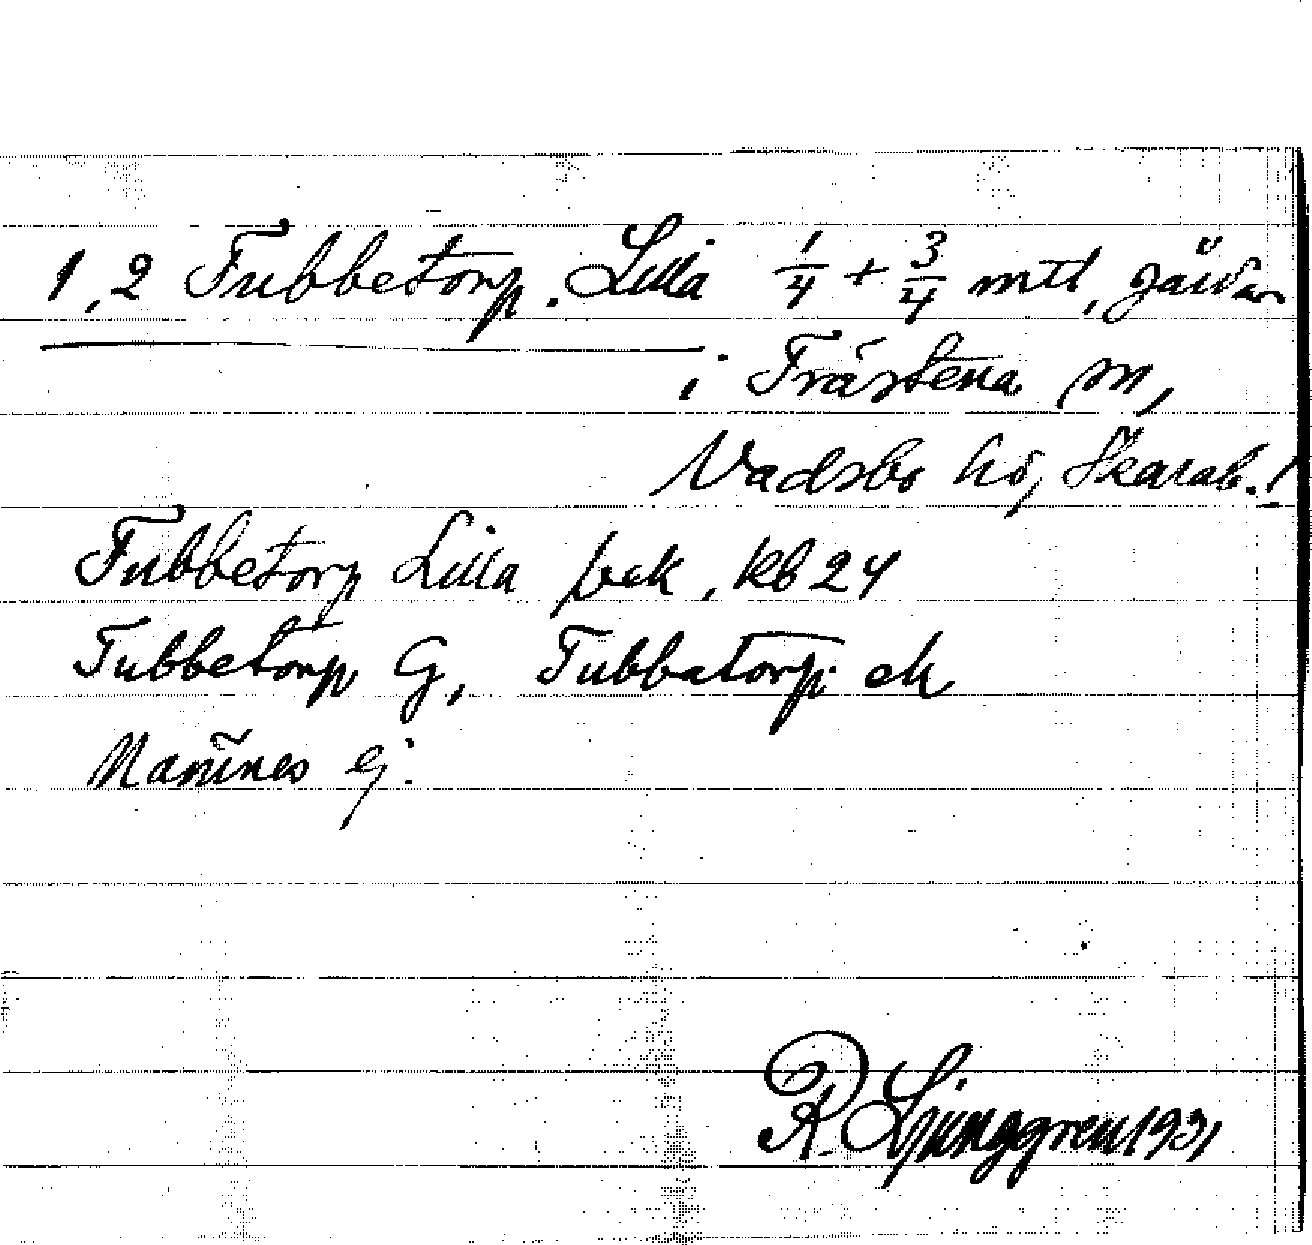 1,2 Tubbetorp. Lilla 1/4 + 3/4 mtl, gårdar
i Trästena sn,
Vadsbo hd, Skarab. l
Tubbetorp Lilla bek, kb 24
Tubbetorp G, Tubbatorp ek
Namnes ej.
R. Ljunggren 1931